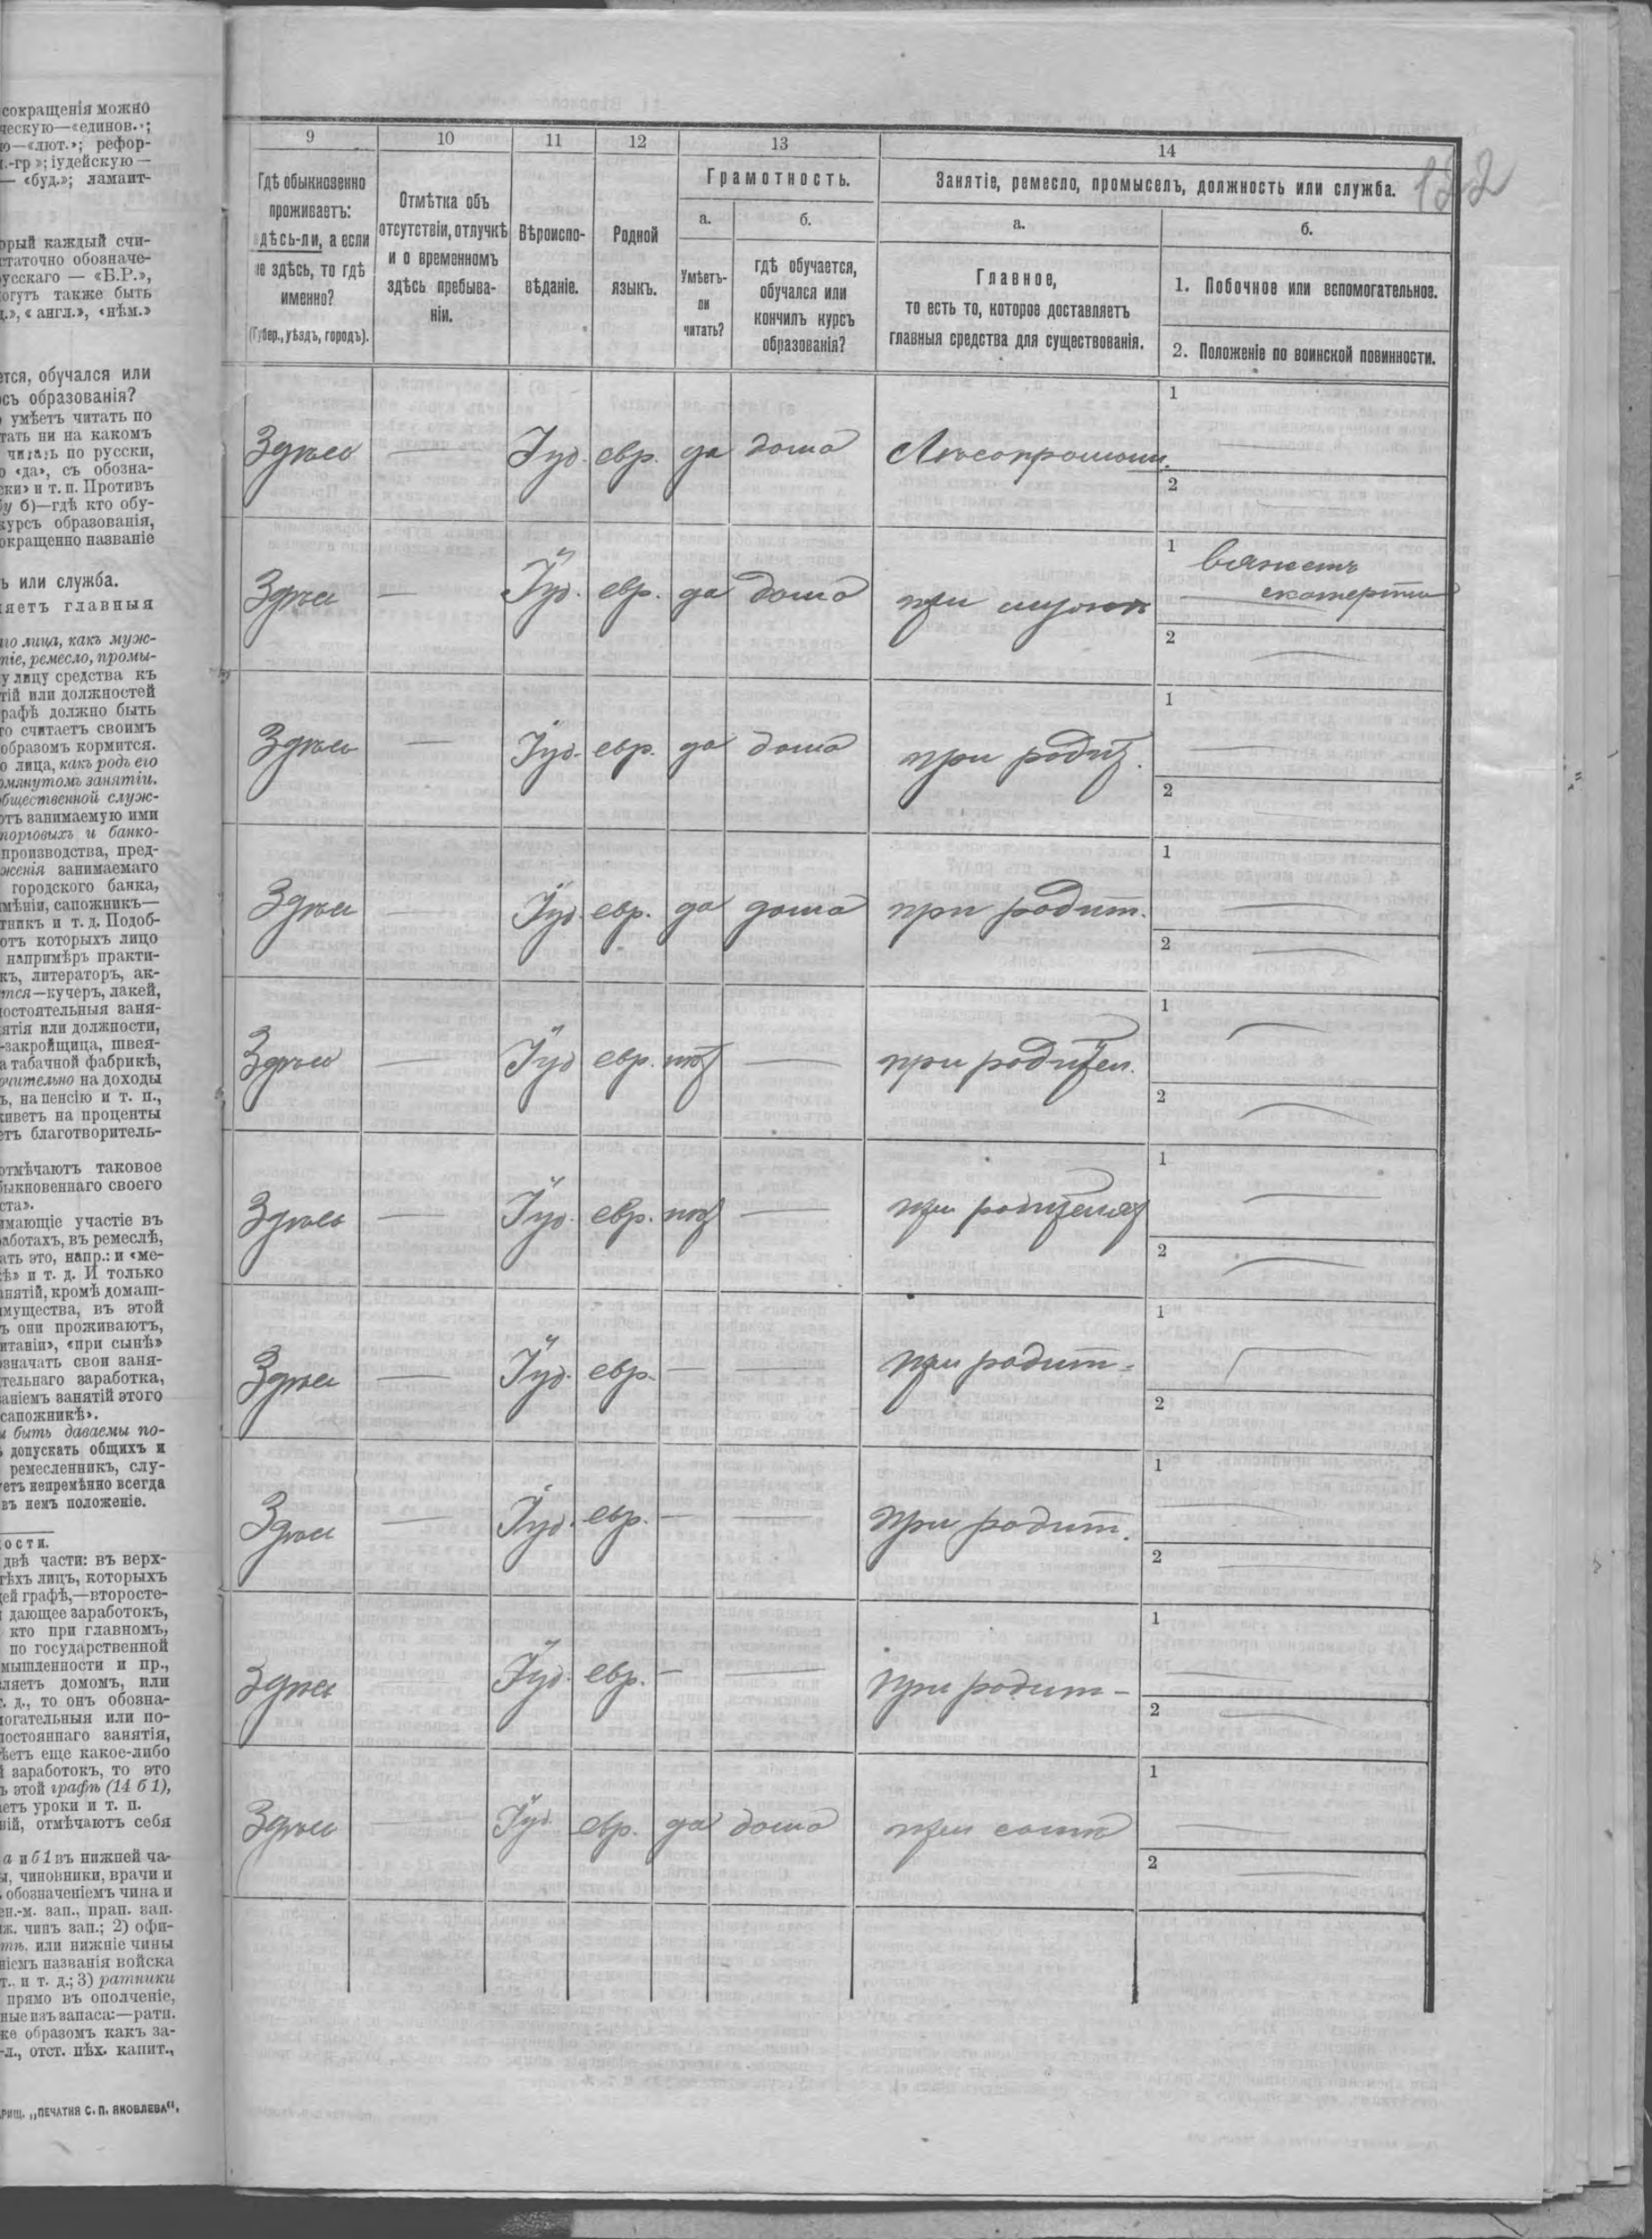 сокращенія можно
ческую—«единов.»;
ю—«лют.»; рефор-
.-гр»; іудейскую —
— «буд.»; ламаит-
орый каждый счи-
статочно обозначе-
усскаго — «Б.Р.»,
огутъ также быть
.», «англ.», «нѣм.»
ется, обучался или
съ образованія?
умѣетъ читать по
тать ни на какомъ
читать по русски,
о «да», съ обозна-
ски» и т. п. Противъ
у б)—гдѣ кто обу-
курсъ образованія,
окращенно названіе
ь или служба.
ляетъ главныя
го лица, какъ муж-
тіе, ремесло, промы-
у лицу средства къ
тій или должностей
рафѣ должно быть
го считаетъ своимъ
образомъ кормится.
о лица, какъ родъ его
омянутомъ занятіи.
бщественной служ-
отъ занимаемую ими
торговыхъ и банко-
производства, пред-
женія занимаемаго
городского банка,
мѣніи, сапожникъ—
тникъ и т. д. Подоб-
отъ которыхъ лицо
напримѣръ практи-
къ, литераторъ, ак-
тся—кучеръ, лакей,
остоятельныя заня-
ятія или должности,
-закройщица, швея-
а табачной фабрикѣ,
ючительно на доходы
ъ, на пенсію и т. п.,
живетъ на проценты
етъ благотворитель-
отмѣчаютъ таковое
быкновеннаго своего
ста».
имающіе участіе въ
аботахъ, въ ремеслѣ,
ать это, напр.: и «ме-
ѣ» и т. д. И только
анятій, кромѣ домаш-
мущества, въ этой
ъ они проживаютъ,
итаніи», «при сынѣ»
означать свои заня-
тельнаго заработка,
аніемъ занятій этого
сапожникѣ».
ы быть даваемы по-
допускать общихъ и
ремесленникъ, слу-
етъ непремѣнно всегда
въ немъ положеніе.
ости.
двѣ части: въ верх-
тѣхъ лицъ, которыхъ
ей графѣ,—второсте-
дающее заработокъ,
кто при главномъ,
по государственной
мышленности и пр.,
ляетъ домомъ, или
. д., то онъ обозна-
огательныя или по-
постояннаго занятія,
ѣетъ еще какое-либо
заработокъ, то это
ъ этой графѣ (14 б 1),
аетъ уроки и т. п.
ній, отмѣчаютъ себя
а и б1 въ нижней ча-
ы, чиновники, врачи и
обозначеніемъ чина и
ен.-м. зап., прап. зап.
иж. чинъ зап.; 2) офи-
тѣ. или нижніе чины
ніемъ названія войска
т. и т. д.; 3) ратники
прямо въ ополченіе,
ные изъ запаса:—ратн.
же образомъ какъ за-
-л., отст. пѣх. капит.,
РИЩ. „ПЕЧАТНЯ С. П. ЯКОВЛЕВА“.
122
9 10 11 12 13 14
Гдѣ обыкновенно
проживаетъ:
здѣсь-ли, а если
не здѣсь, то гдѣ
именно?
(Губер., уѣздъ, городъ).
Отмѣтка объ
отсутствіи, отлучкѣ
и о временномъ
здѣсь пребыва-
ніи.
Вѣроиспо-
вѣданіе.
Родной
языкъ.
Грамотность.
а.
Умѣетъ-
ли
читать?
б.
гдѣ обучается,
обучался или
кончилъ курсъ
образованія?
Занятіе, ремесло, промыселъ, должность или служба.
а.
Главное,
то есть то, которое доставляетъ
главныя средства для существованія.
б.
1. Побочное или вспомогательное.
2. Положеніе по воинской повинности.
Здѣсь — Іуд. евр. да дома Лѣсопромыш. 1 —
2
Здѣсь — Іуд. евр. да дома при мужѣ 1 вяжетъ
скатерти
2 —
Здѣсь — Іуд. евр. да дома при родит. 1 —
2
Здѣсь — Іуд. евр. да дома при родит. 1 —
2 —
Здѣсь — Іуд евр. нѣт — при родител. 1 —
2 —
Здѣсь — Іуд. евр. нѣт — при родителях 1 —
2 —
Здѣсь — Іуд. евр. — — при родит. 1 —
2
Здѣсь — Іуд. евр. — — при родит. 1 —
2 —
Здѣсь — Іуд. евр. — — при родит — 1 —
2 —
Здѣсь — Іуд. евр. да дома при сынѣ 1 —
2 —